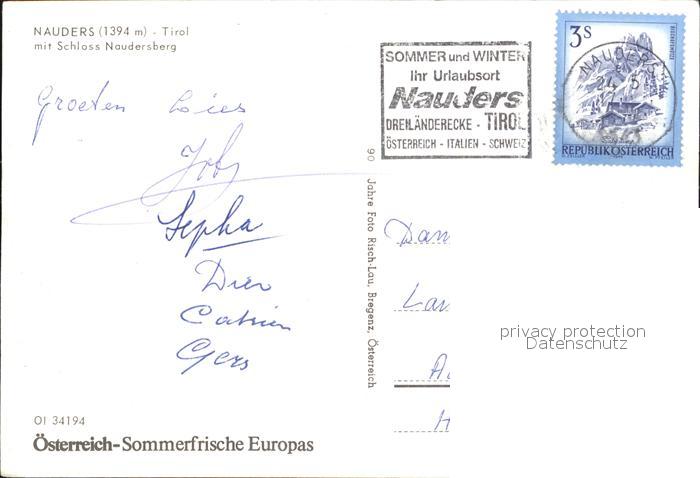 NAUDERS (1394 m) - Tirol
mit Schloss Naudersberg
Groeten Loes
Sepha
Dier
Gers
OI 34194
Österreich-Sommerfrische Europas
90 Jahre Foto Risch-Lau, Bregenz, Österreich
SOMMER und WINTER
Ihr Urlaubsort
Nauders
DREILÄNDERECKE - TIROL
ÖSTERREICH - ITALIEN - SCHWEIZ
3 S
NAUDERS
REPUBLIK ÖSTERREICH
privacy protection
Datenschutz